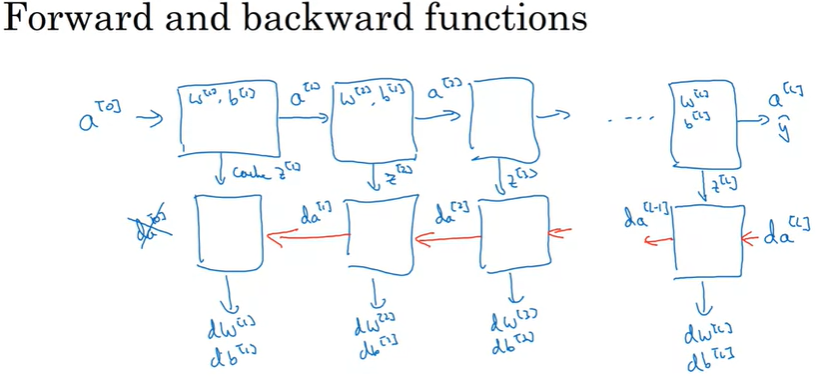 Forward and backward functions
a^[0] → w^[1], b^[1] a^[1] w^[2], b^[2] a^[2] → → ···· w^[L] a^[L]
b^[L] ŷ
cache z^[1] z^[2] z^[3] z^[L]
da^[0] da^[1] da^[2] da^[L-1] da^[L]
dw^[1] dw^[2] dw^[3] dw^[L]
db^[1] db^[2] db^[3] db^[L]